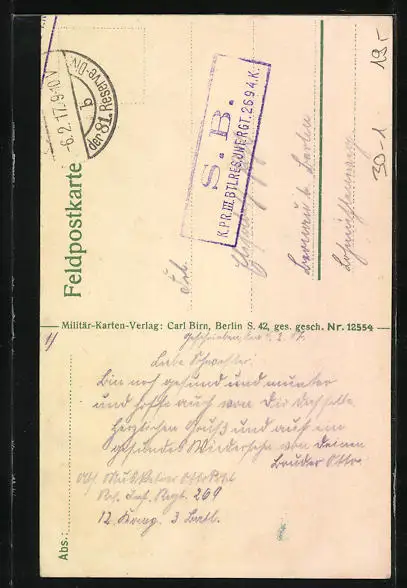 6.2.17.9-10V
der 81. Reserve-Div.
b
S. B.
K.PR.III.BTL.RES.INF.RGT.269 4.K.
19.-
30-1
Feldpostkarte
Bernau b. Berlin
Militär-Karten-Verlag: Carl Birn, Berlin S. 42, ges. gesch. Nr. 12554
Geschrieben, den 5.2.17.
Liebe Schwester!
Bin noch gesund und munter
und hoffe auch von Dir dasselbe
Herzlichen Gruß und auf ein
gesundes Wiedersehn von deinem
Bruder Otto.
Abs. Musketier Otto
Res. Inf. Regt. 269
12 Komp. 3 Batl.
Abs.: